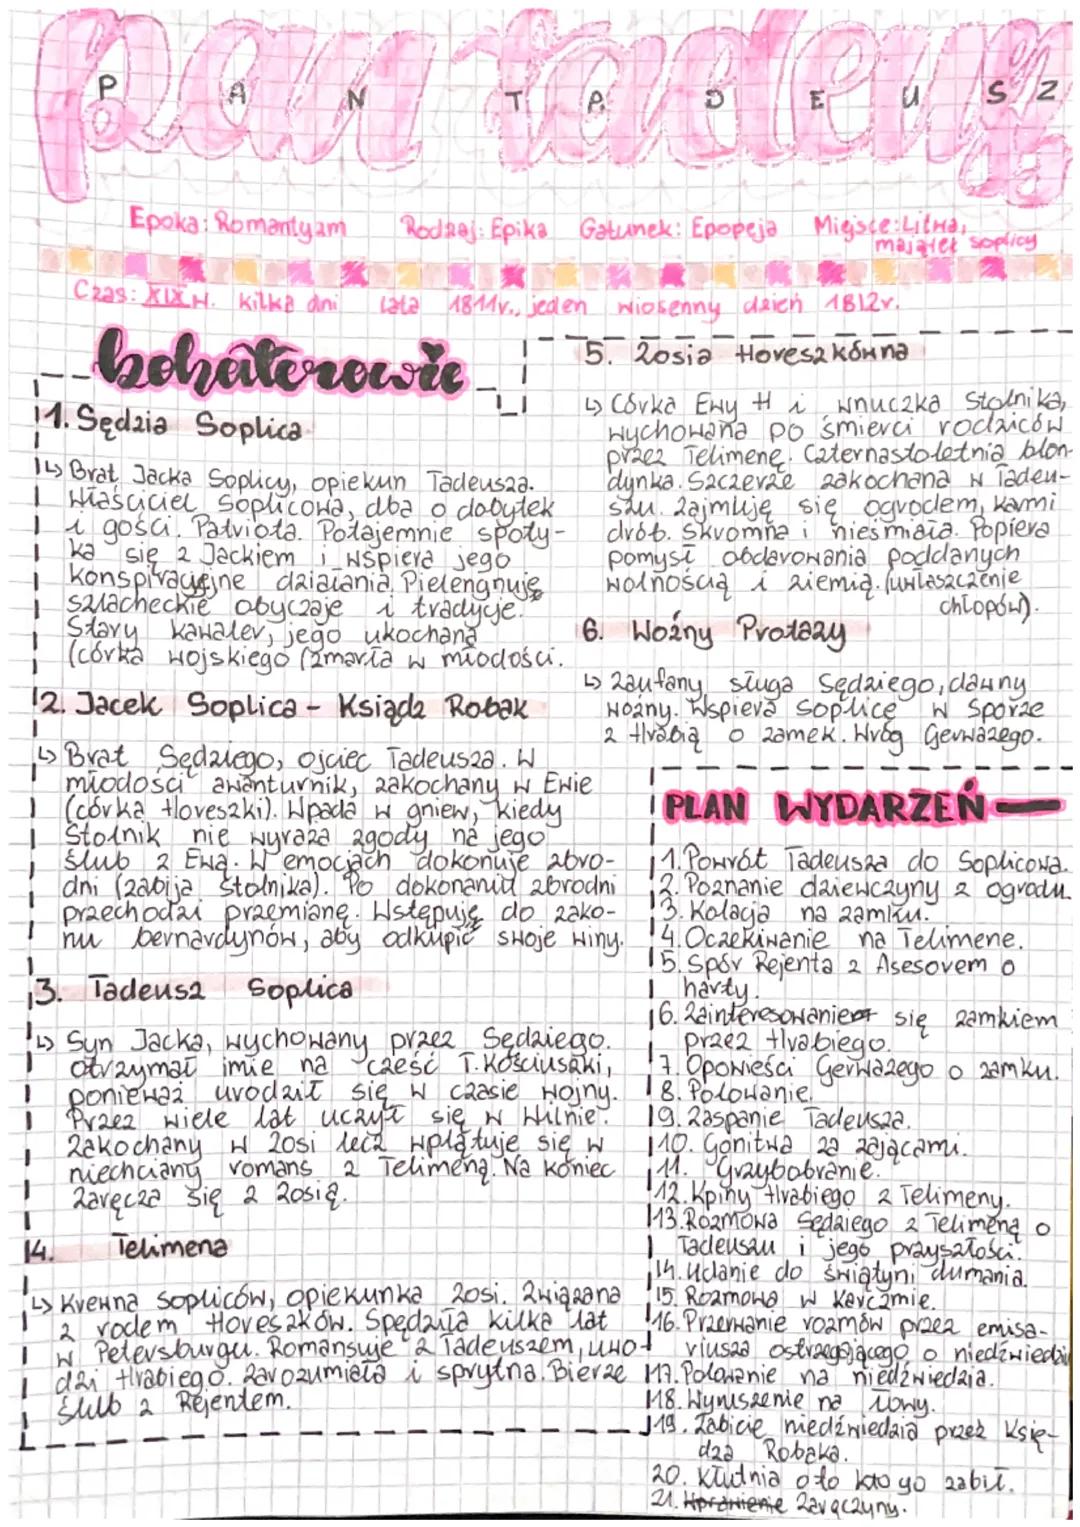 pan tadeusz
PAN TADEUSZ
Epoka: Romantyzm Rodzaj: Epika Gatunek: Epopeja Miejsce: Litwa,
majątek soplicy
Czas: XIX w. kilka dni lata 1811r., jeden wiosenny dzień 1812r.
bohaterowie
1. Sędzia Soplica
↳ Brat Jacka Soplicy, opiekun Tadeusza.
Właściciel Soplicowa, dba o dobytek
i gości. Patriota. Potajemnie spoty-
ka się z Jackiem i wspiera jego
konspiracyjne działania. Pielengnuje
szlacheckie obyczaje i tradycje.
Stary kawaler, jego ukochana
(córka wojskiego (zmarła w młodości.
2. Jacek Soplica - Ksiądz Robak
↳ Brat Sędziego, ojciec Tadeusza. W
młodości awanturnik, zakochany w Ewie
(córka Horeszki). Wpada w gniew, kiedy
Stolnik nie wyraża zgody na jego
ślub z Ewą. W emocjach dokonuje zbro-
dni (zabija Stolnika). Po dokonaniu zbrodni
przechodzi przemianę. Wstępuję do zako-
nu bernardynów, aby odkupić swoje winy.
3. Tadeusz Soplica
↳ Syn Jacka, wychowany przez Sędziego.
otrzymał imie na cześć T. Kościuszki,
ponieważ urodził się w czasie wojny.
Przez wiele lat uczył się w Wilnie.
Zakochany w Zosi lecz wplątuje się w
niechciany romans z Telimeną. Na koniec
zaręcza się z Zosią.
4. Telimena
↳ Krewna sopliców, opiekunka Zosi. Związana
z rodem Horeszków. Spędziła kilka lat
w Petersburgu. Romansuje z Tadeuszem, uwo-
dzi Hrabiego. Zarozumiała i sprytna. Bierze
ślub z Rejentem.
5. Zosia Horeszkówna
↳ Córka Ewy H i wnuczka Stolnika,
wychowana po śmierci rodziców
przez Telimenę. Czternastoletnia blon-
dynka. Szczerze zakochana w Tadeu-
szu. Zajmuję się ogrodem, karmi
drób. Skromna i nieśmiała. Popiera
pomysł obdarowania poddanych
wolnością i ziemią. (uwłaszczenie
chłopów).
6. Woźny Protazy
↳ Zaufany sługa Sędziego, dawny
woźny. Wspiera Soplicę w sporze
z Hrabią o zamek. Wróg Gerwazego.
PLAN WYDARZEŃ
1. Powrót Tadeusza do Soplicowa.
2. Poznanie dziewczyny z ogrodu.
3. Kolacja na zamku.
4. Oczekiwanie na Telimene.
5. Spór Rejenta z Asesorem o
harty.
6. Zainteresowanie się zamkiem
przez Hrabiego.
7. Opowieści Gerwazego o zamku.
8. Polowanie.
9. Zaspanie Tadeusza.
10. Gonitwa za zającami.
11. Grzybobranie.
12. Kpiny Hrabiego z Telimeny.
13. Rozmowa Sędziego z Telimeną o
Tadeuszu i jego przyszłości.
14. Udanie do świątyni dumania.
15. Rozmowa w karczmie.
16. Przerwanie rozmów przez emisa-
riusza ostrzegającego o niedźwiedziu
17. Polowanie na niedźwiedzia.
18. Wyruszenie na łowy.
19. Zabicie niedźwiedzia przez Księ-
dza Robaka.
20. Kłutnia o to kto go zabił.
21. Zaręczyny.